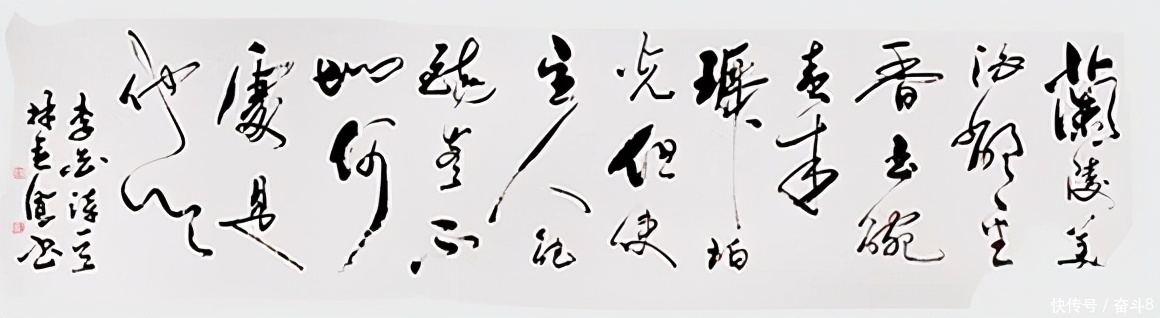 蘭陵美
酒鬱金
香玉碗
盛来
琥珀
光但使
主人能
醉客不
如何
處是
他鄉
李白詩
書
快传号 / 奋斗8